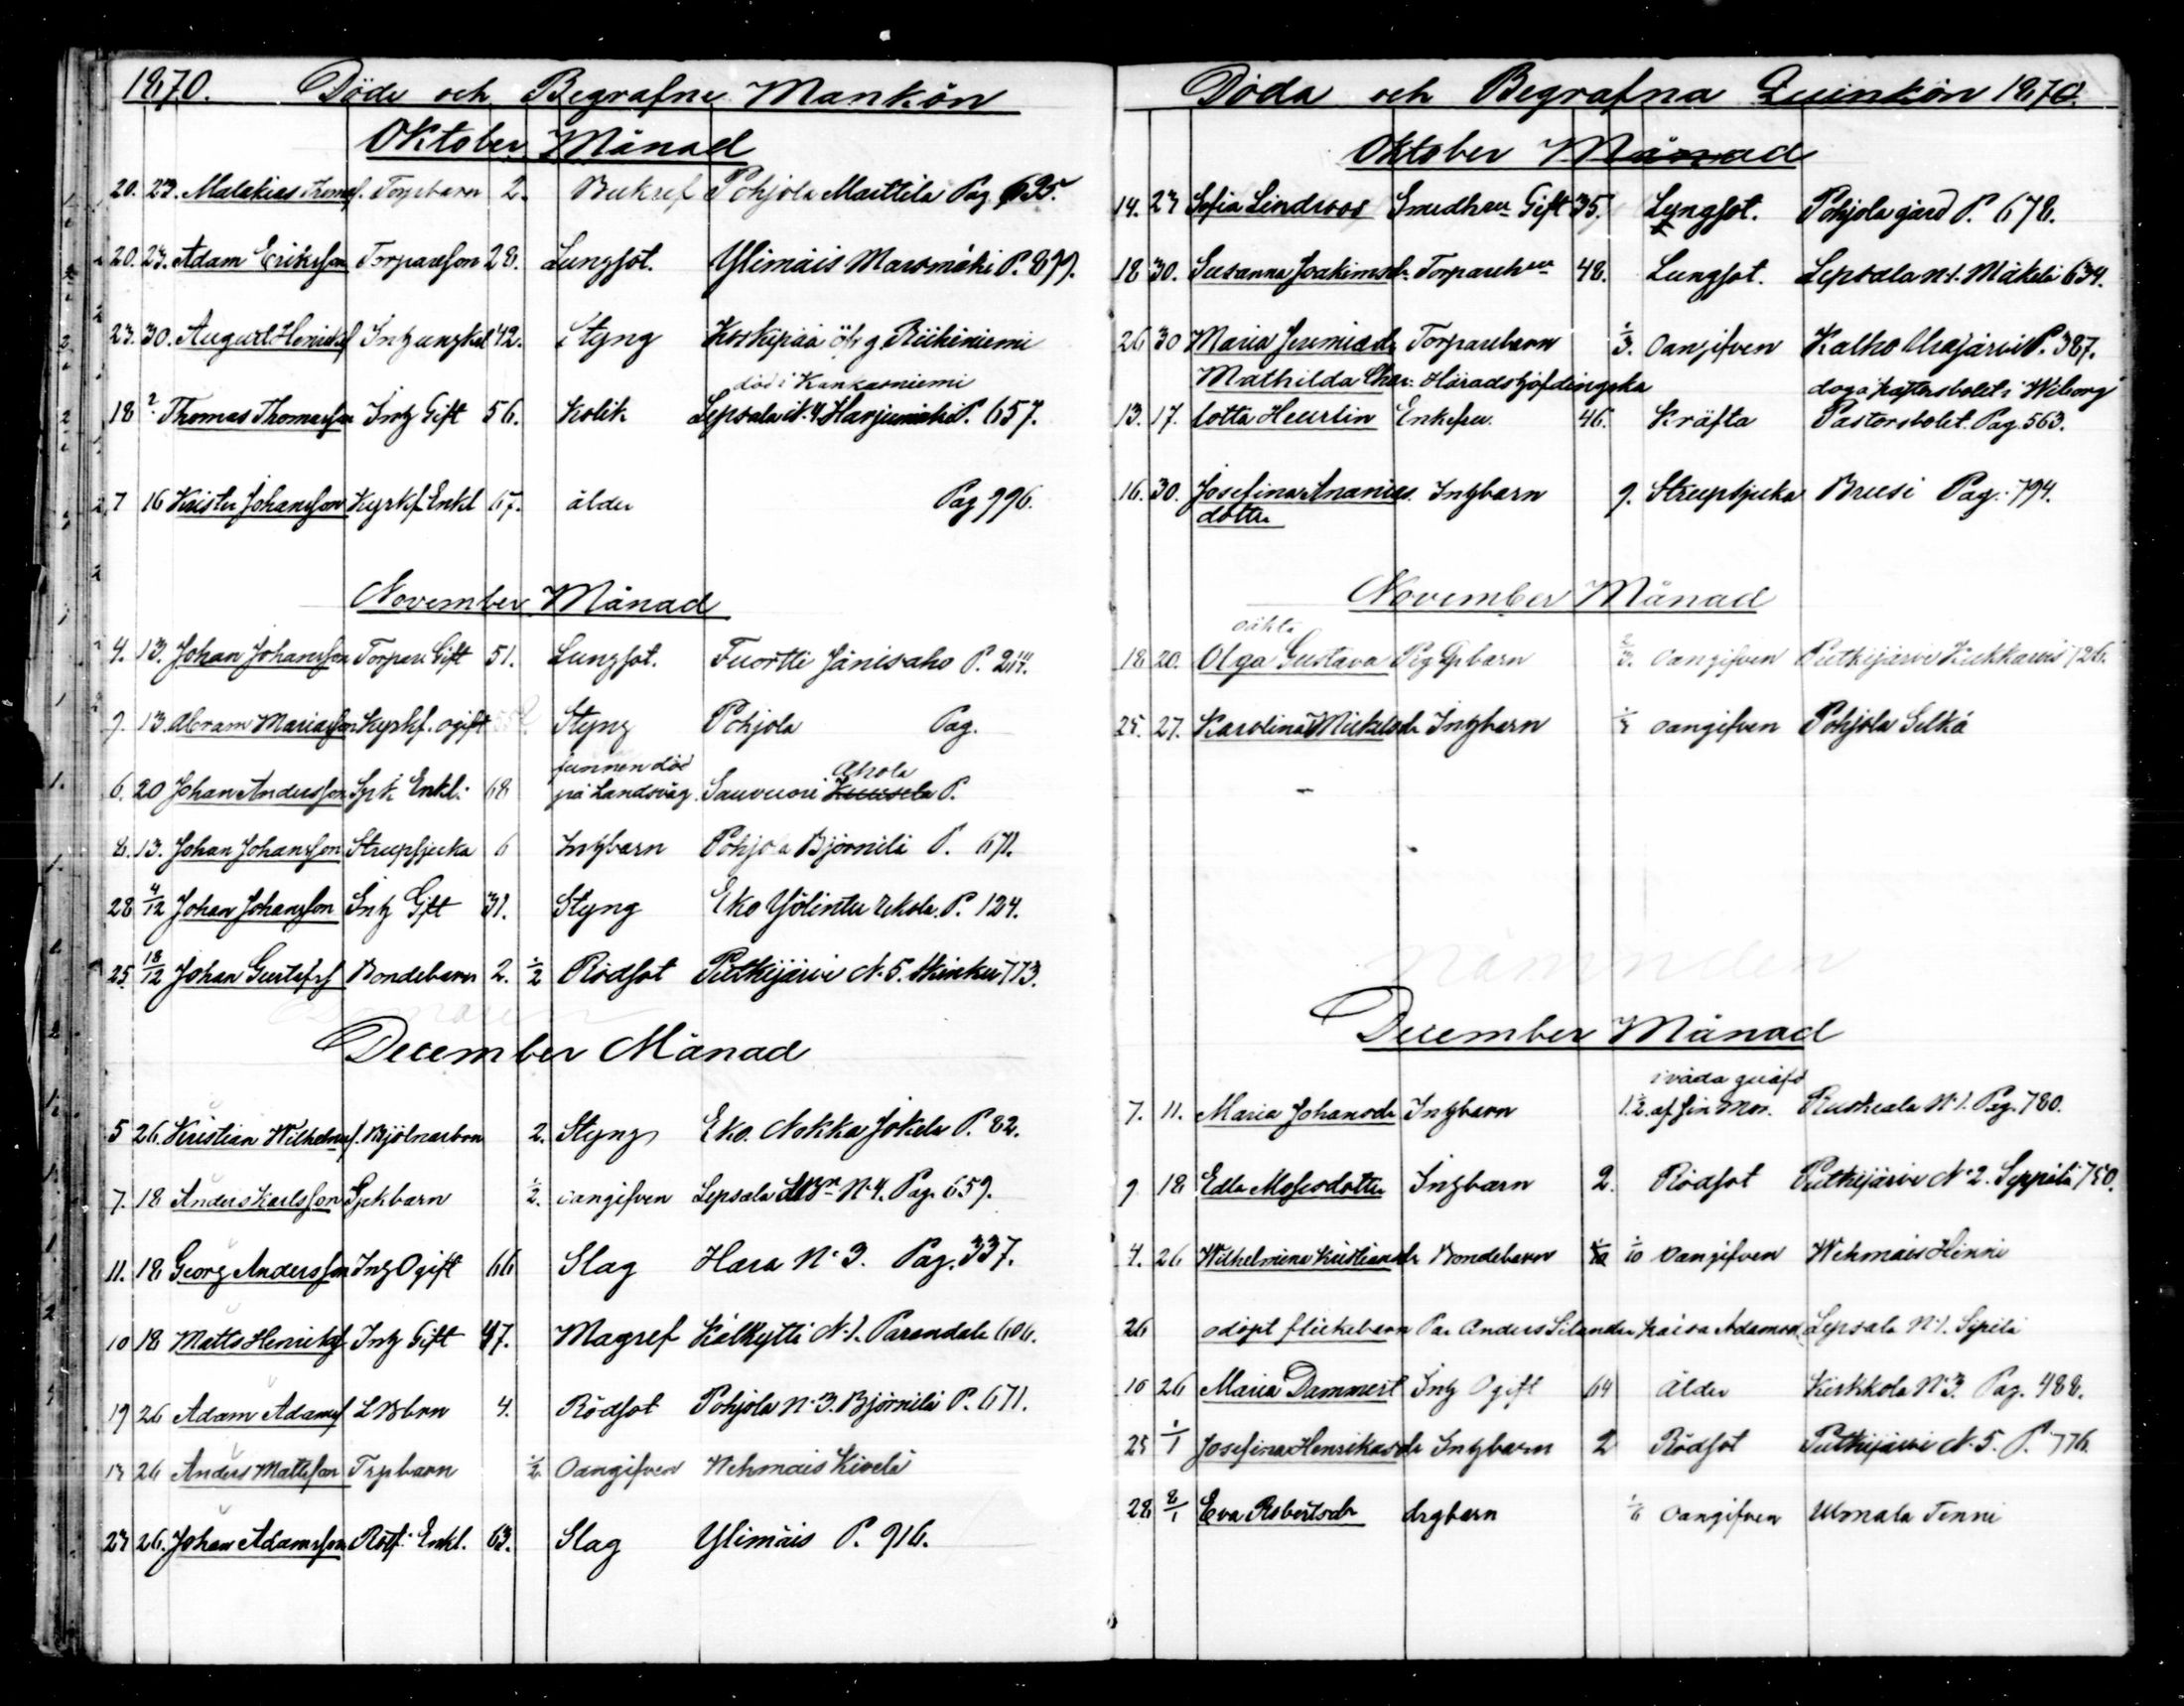 1870. Döde och Begrafne Mankön
Oktober Månad
20. 23. Malakias Thomasf. Torpbarn 2. Bukref Pohjola Marttila Pag. 695.
20. 23. Adam Eriksson Torpareson 28. Lungsot. Ylimäis Marsmäki P. 879.
23. 30. August Henriksf Inh ungkel 42. Styng Koskipää öfr g Riikiniemi
död i Kankasniemi
18 2 Thomas Thomasson Inh Gift 56. Kolik Lepsala N. 4 Harjumäki P. 657.
7 16 Krister Johansson Kyrkf. Enkl 67. ålder Pag 996.
November Månad
4. 13. Johan Johansson Torpare Gift 51. Lungsot. Tuortti Jänisaho P. 217.
9. 13. Abram Mariasson Kyrkf. ogift Styng Pohjola Pag.
funnen död Ahola
6. 20 Johan Andersson Spk Enkl. 68 på Landsväg. Sauvuori Kuusela P.
8. 13. Johan Johansson Strupsjuka 6 Inhbarn Pohjola Björnilä P. 671.
28 4/12 Johan Johansson Inh Gift 31. Styng Eko Yölintu Ukola. P. 124.
25. 18/12 Johan Gustafsf Bondebarn 2. 1/2 Rödsot Putkijärvi N. 5. Hinku 773.
December Månad
5 26. Kristian Wilhelmsf. Mjölnarbrn 2. Styng Eko. Nokka Jokela P. 82.
7. 18 Anders Karlsson Spkbarn 1/2. oangifven Lepsala N. 4. Pag. 659.
11. 18 Georg Andersson Inh Ogift 66 Slag Hara N. 3. Pag. 337.
10 18 Matts Henriksf. Inh Gift 47. Magref Kälkytti N. 1. Parondala 606.
19 26 Adam Adamsf LBbrn 4. Rödsot Pohjola N. 3. Björnilä P. 671.
13 26 Anders Mattsson Trpbarn 1/2. Oangifven Wehmais Kivelä
23 26. Johan Adamsson Rotf. Enkl. 63. Slag Ylimäis P. 916.
Döda och Begrafna Quinkön 1870.
Oktober Månad
14. 23 Sofia Lindroos Smedhru Gift 35. Lungsot. Pohjola gård P. 678.
18 30. Susanna Joakimsdr. Torparehru 48. Lungsot. Lepsala N. 1. Mäkelä 634.
26 30 Maria Jeremiasdr Torparebarn 1/3. Oangifven Kalho Ahajärvi P. 387.
Mathilda Char: Häradshöfdingska
13. 17. Lotta Heurlin Enkefru. 46. Kräfta Pastorsbolet. Pag. 563.
16. 30. Josefina Ananias Inhbarn 9. Strupsjuka Brusi Pag. 794.
dotter
November Månad
oäkta
18 20. Olga Gustava Pig Spbarn 2/3. oangifven Putkijärvi Kukkarois 726.
25. 27. Karolina Mickelsdr Inhbarn oangifven Pohjola Selkä
December Månad
i våda qväfd
7. 11. Maria Johansdr Inhbarn 1/2. af sin Mor. Ruskeala N. 1. Pag. 780.
9 18 Edla Mosesdotter Inhbarn 2. Rödsot Putkijärvi N. 2. Seppälä 750.
4. 26 Wilhelmina Kristiansdr Bondebarn 1/10 oangifven Wehmais Hinni
26 odöpt flickebarn Par Anders Silander Kaisa Adamsdr Lepsala N. 1. Sipilä
10 26 Maria Dammert Inh Ogift 64 Ålder Kirkkola N. 3. Pag. 488.
25 1/1 Josefina Henrikasdr Inhbarn 2 Rödsot Putkijärvi N. 5. P. 776.
28 8/1 Eva Robertsdr drgbarn 1/6 Oangifven Uronala Tenni